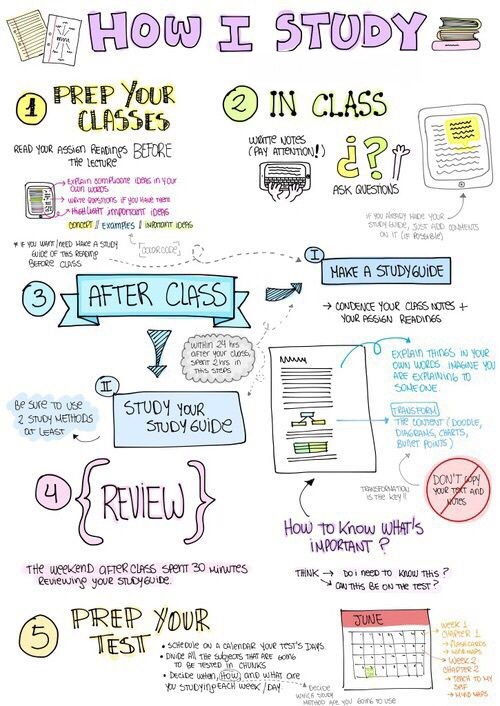 HOW I STUDY
1 PREP YOUR
CLASSES
READ YOUR ASSIGN READINGS BEFORE
THE LECTURE
→ EXPLAIN COMPLICATE IDEAS IN YOUR
OWN WORDS
→ WRITE QUESTIONS IF YOU HAVE THEM
→ HIGHLIGHT IMPORTANT IDEAS
CONCEPT // EXAMPLES // IMPORTANT IDEAS
COLOR CODE
* IF YOU WANT/NEED MAKE A STUDY
GUIDE OF THIS READING
BEFORE CLASS
2 IN CLASS
WRITE NOTES
(PAY ATTENTION!)
¿?
ASK QUESTIONS
IF YOU ALREADY MADE YOUR
STUDY GUIDE, JUST ADD COMMENTS
ON IT (IF POSSIBLE)
3 AFTER CLASS
WITHIN 24 HRS
AFTER YOUR CLASS,
SPENT 2 HRS IN
THIS STEPS
I
MAKE A STUDYGUIDE
→ CONDENCE YOUR CLASS NOTES +
YOUR ASSIGN READINGS
EXPLAIN THINGS IN YOUR
OWN WORDS IMAGINE YOU
ARE EXPLAINING TO
SOMEONE.
TRANSFORM
THE CONTENT (DOODLE,
DIAGRAMS, CHARTS,
BULLET POINTS)
TRANSFORMATION
IS THE KEY!!
DON'T COPY
YOUR TEXT AND
NOTES
II
STUDY YOUR
STUDY GUIDE
BE SURE TO USE
2 STUDY METHODS
AT LEAST
HOW TO KNOW WHAT'S
IMPORTANT?
THINK → DO I NEED TO KNOW THIS?
↘ CAN THIS BE ON THE TEST?
4 {REVIEW}
THE WEEKEND AFTER CLASS SPENT 30 MINUTES
REVIEWING YOUR STUDYGUIDE.
5 PREP YOUR
TEST
• SCHEDULE ON A CALENDAR YOUR TEST'S DAYS.
• DIVIDE ALL THE SUBJECTS THAT ARE GOING
TO BE TESTED IN CHUNKS
• DECIDE WHEN, HOW AND WHAT ARE
YOU STUDYING EACH WEEK/DAY
DECIDE
WHICH STUDY
METHOD ARE YOU GOING TO USE
JUNE
→ WEEK 1
CHAPTER 1
→ FLASHCARDS
→ MIND MAPS
→ WEEK 2
CHAPTER 2
→ TEACH TO MY
SELF
→ MIND MAPS